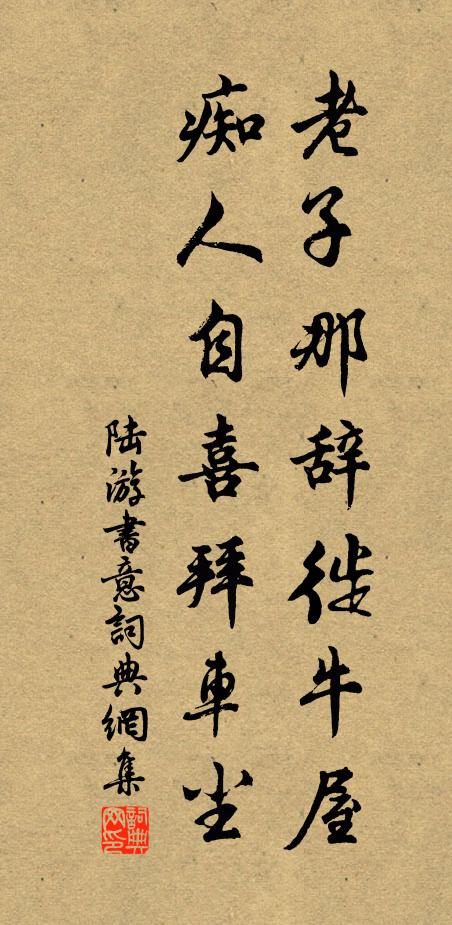 老子那辞徙牛屋
痴人自喜拜車尘
陆游書意詞典網集
詞典
网印